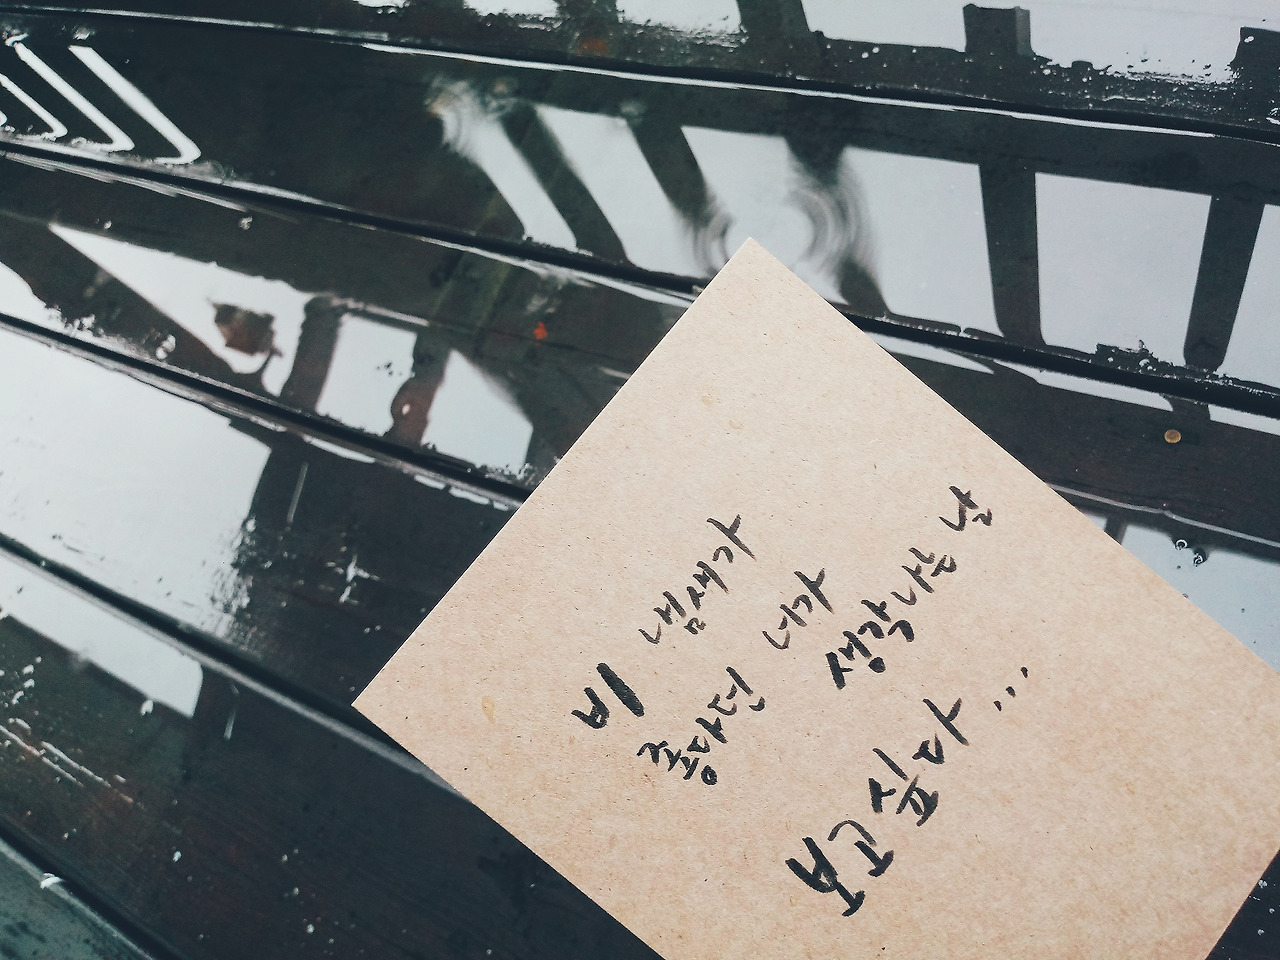 비 냄새가
좋았던 너가
생각나는 날
보고싶다...